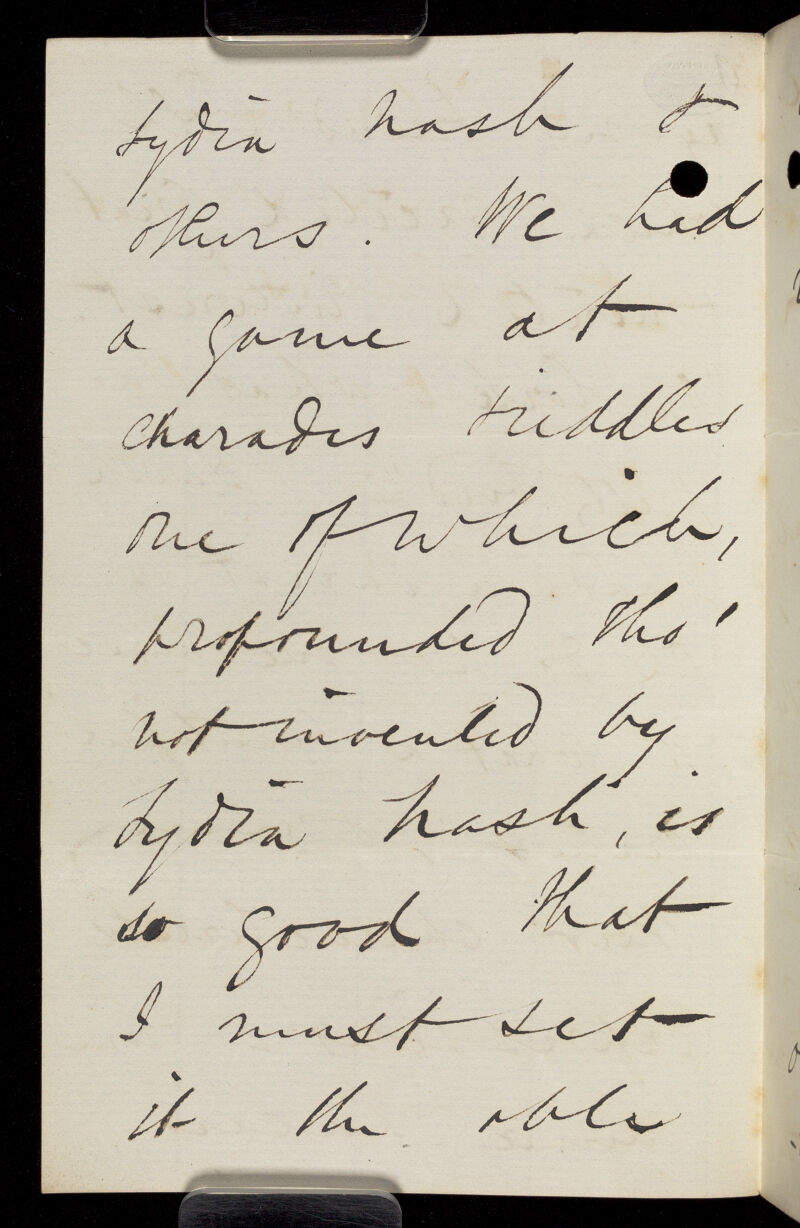 Lydia Nash &
others. We had
a game at
charades & riddles
one of which,
propounded tho'
not invented by
Lydia Nash, is
so good that
I must set
it the able